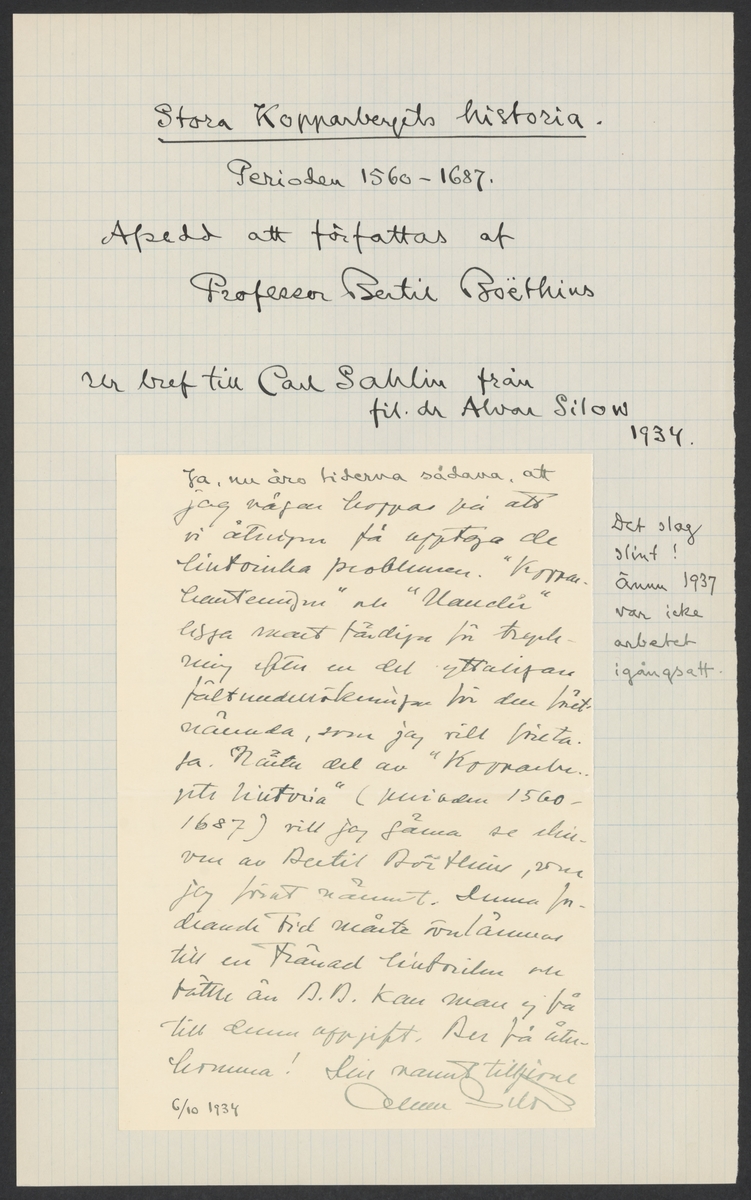 Stora Kopparbergets historia.
Perioden 1560-1687.
Afsedd att författas af
Professor Bertil Boëthius
Ur bref till Carl Sahlin från
fil. dr Alvar Silow
1934.
Ja, nu äro tiderna sådana, att
jag vågar hoppas på att
vi återigen få upptaga de
historiska problemen. "Koppar-
hanteringen" och
ligga snart färdiga för tryck-
ning efter en del ytterligare
fältundersökningar för den först-
nämnda, som jag vill företa-
ga. Nästa del av "Kopparber-
gets historia" (perioden 1560-
1687) vill jag gärna se skri-
ven av Bertil Boëthius, som
jag förut nämnt. Denna fo-
drande tid måste överlämnas
till en tränad historiker och
bättre än B.B. kan man ej få
till denna uppgift. Ber få åter-
komma! Din varmt tillgivne
Alvar Silow
6/10 1934
Det slog
slint!
Ännu 1937
var icke
arbetet
igångsatt.